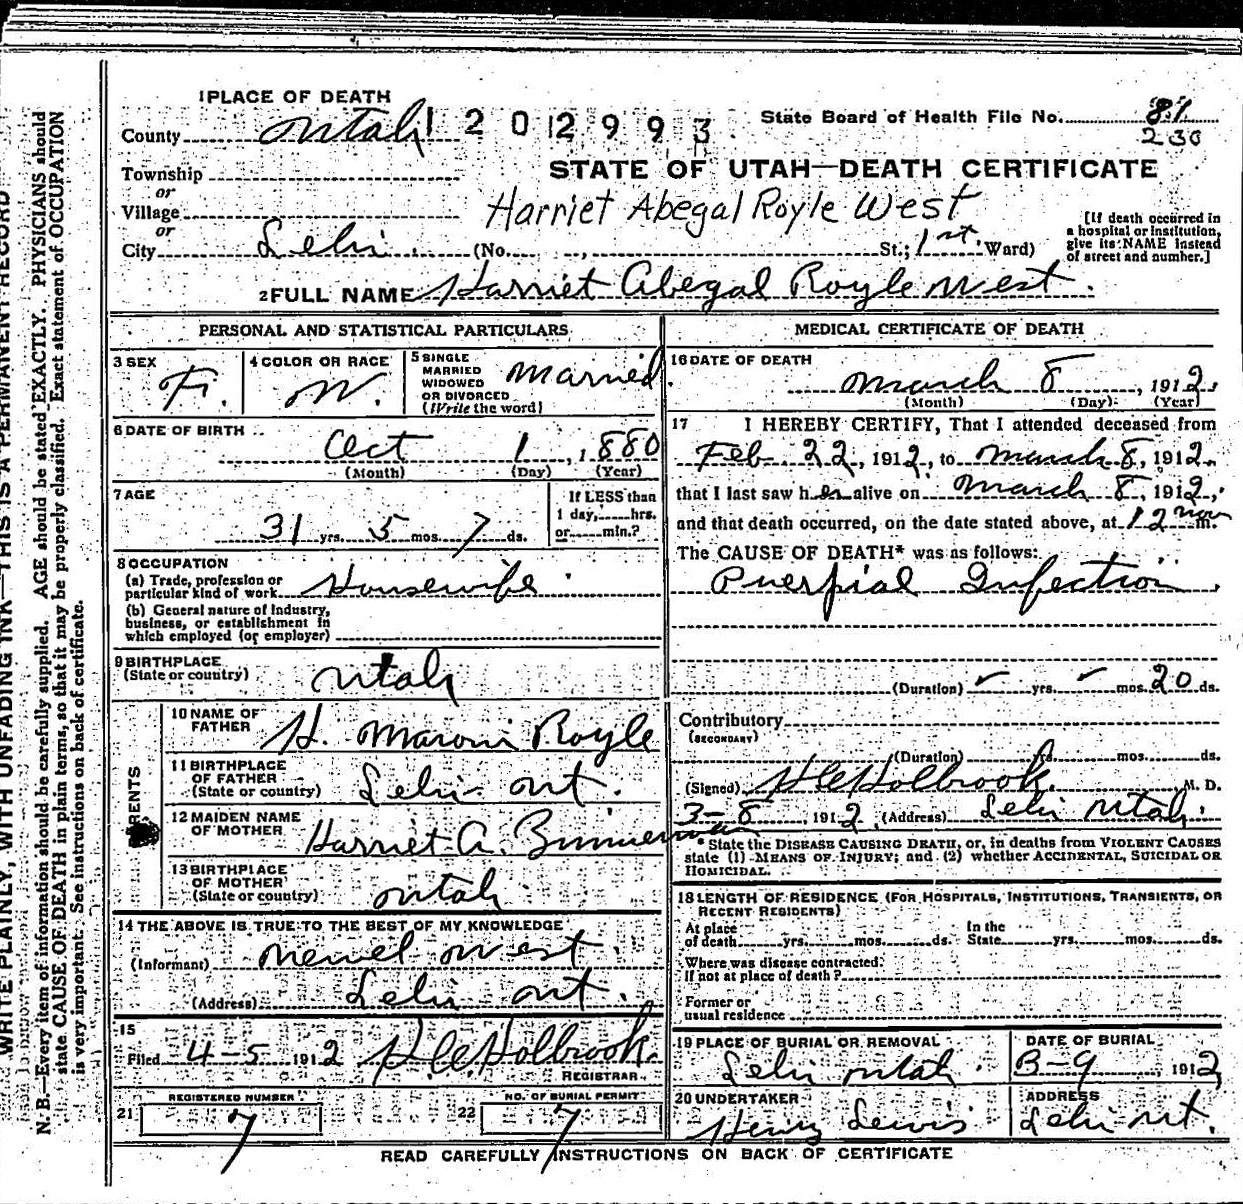 1 PLACE OF DEATH
County Utah 1202993 State Board of Health File No. 81
230
Township
STATE OF UTAH—DEATH CERTIFICATE
or
Village
Harriet Abegal Royle West
or
City Lehi (No. , St.; 1st. Ward)
[If death occurred in
a hospital or institution,
give its NAME instead
of street and number.]
2 FULL NAME Harriet Abegal Royle West.
PERSONAL AND STATISTICAL PARTICULARS
3 SEX F.
4 COLOR OR RACE W.
5 SINGLE
MARRIED
WIDOWED
OR DIVORCED
(Write the word)
Married
6 DATE OF BIRTH
Oct 1, 1880
(Month) (Day) (Year)
7 AGE
31 yrs. 5 mos. 7 ds.
If LESS than
1 day, hrs.
or min.?
8 OCCUPATION
(a) Trade, profession or
particular kind of work Housewife
(b) General nature of industry,
business, or establishment in
which employed (or employer)
9 BIRTHPLACE
(State or country) Utah
PARENTS
10 NAME OF
FATHER H. Maroni Royle
11 BIRTHPLACE
OF FATHER
(State or country) Lehi Ut.
12 MAIDEN NAME
OF MOTHER Harriet A. Zimmerman
13 BIRTHPLACE
OF MOTHER
(State or country) Utah
14 THE ABOVE IS TRUE TO THE BEST OF MY KNOWLEDGE
(Informant) Newel West.
(Address) Lehi Ut.
15
Filed 4-5 1912 H.C. Holbrook.
REGISTRAR
REGISTERED NUMBER
21 7
NO. OF BURIAL PERMIT
22 7
MEDICAL CERTIFICATE OF DEATH
16 DATE OF DEATH
March 8, 1912.
(Month) (Day) (Year)
17 I HEREBY CERTIFY, That I attended deceased from
Feb 22, 1912, to March 8, 1912.
that I last saw her alive on March 8, 1912,
and that death occurred, on the date stated above, at 12 noon m.
The CAUSE OF DEATH* was as follows:
Puerpial Infection
(Duration) yrs. mos. 20 ds.
Contributory
(SECONDARY)
(Duration) mos. ds.
(Signed) H C Holbrook. M. D.
3-8, 1912 (Address) Lehi Utah.
* State the DISEASE CAUSING DEATH, or, in deaths from VIOLENT CAUSES
state (1) MEANS OF INJURY; and (2) whether ACCIDENTAL, SUICIDAL OR
HOMICIDAL.
18 LENGTH OF RESIDENCE (FOR HOSPITALS, INSTITUTIONS, TRANSIENTS, OR
RECENT RESIDENTS)
At place
of death yrs. mos. ds. In the
State yrs. mos. ds.
Where was disease contracted.
If not at place of death?
Former or
usual residence
19 PLACE OF BURIAL OR REMOVAL
Lehi Utah.
DATE OF BURIAL
3-9, 1912
20 UNDERTAKER
Henry Lewis
ADDRESS
Lehi Ut.
READ CAREFULLY INSTRUCTIONS ON BACK OF CERTIFICATE
WRITE PLAINLY, WITH UNFADING INK—THIS IS A PERMANENT RECORD
N. B.—Every item of information should be carefully supplied. AGE should be stated EXACTLY. PHYSICIANS should
state CAUSE OF DEATH in plain terms, so that it may be properly classified. Exact statement of OCCUPATION
is very important. See instructions on back of certificate.